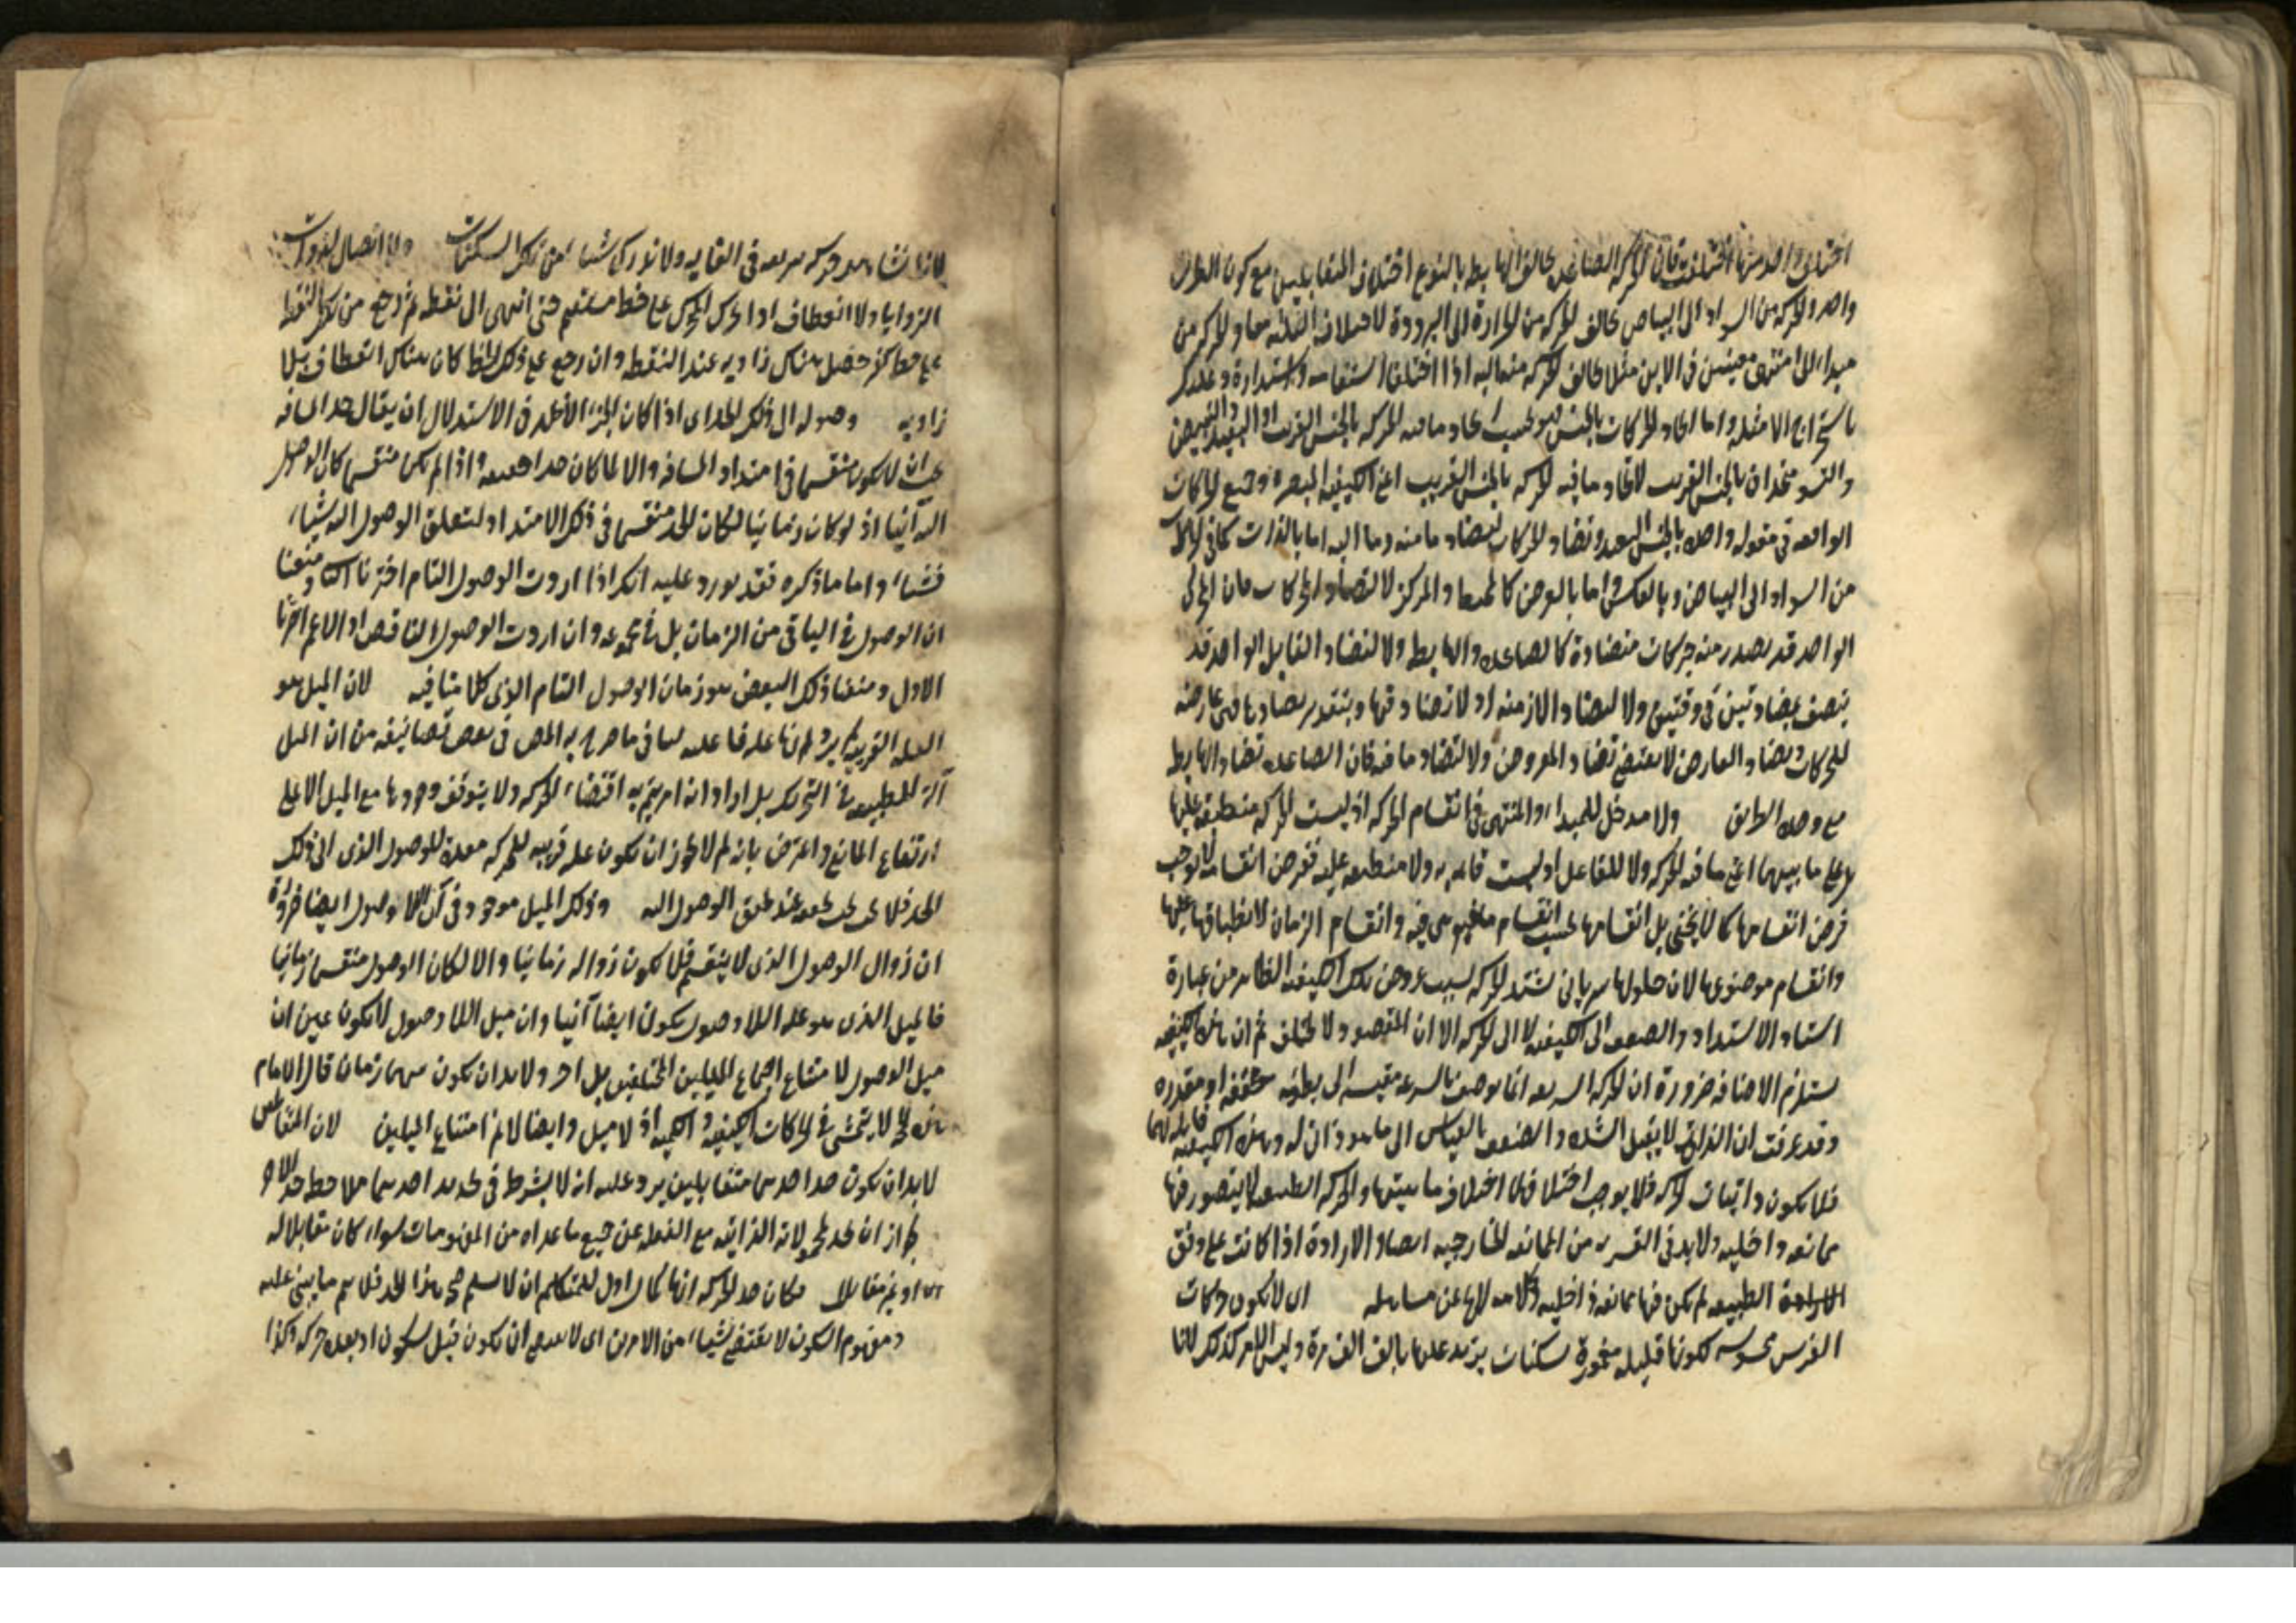 اختلف واحد منها اختلفت فان الحركة الصاعدة تخالف الهابطة بالنوع اختلاف المتقابلين مع كون الطريق
واحدا والحركة من السواد الى البياض تخالف الحركة من الحرارة الى البرودة لاختلاف الثلثة معا والحركة من
مبداء الى منتهى معينين فى الاين مثلا تخالف الحركة منه اليه اذا اختلفا استقامة واستدارة وعليك
باستخراج الامثلة واما اتحاد الحركات بالجنس فهو بحسب اتحاد ما فيه الحركة بالجنس القريب او البعيد
والتسود متحدان بالجنس القريب لاتحاد ما فيه الحركة بالجنس القريب اعنى الكيفية المبصرة وجميع الحركات
الواقعة فى مقولة واحدة بالجنس البعيد وتضاد الحركات لتضاد ما منه وما اليه اما بالذات كما فى الحركة
من السواد الى البياض وبالعكس واما بالعرض كالمحيط والمركز لا لتضاد المحركات فان المحرك
الواحد قد يصدر منه حركات متضادة كالصاعدة والهابطة ولا لتضاد القابل الواحد قد
يتصف بمتضادتين فى وقتين ولا لتضاد الازمنة اذ لا تضاد فيها وبتقدير تضادها فهى عارضة
للحركات وتضاد العارض لا يقتضى تضاد المعروض ولا لتضاد ما فيه فان الصاعدة تضاد الهابطة
مع وحدة الطريق ولا مدخل للمبداء والمنتهى فى انقسام الحركة اذ ليست الحركة منطبقة عليهما
بل على ما بينهما اعنى ما فيه الحركة ولا للفاعل اذ ليست قائمة به ولا منطبقة عليه ففرض انقسامه لا يوجب
فرض انقسامها كما لا يخفى بل انقسامها بحسب انقسام ما هى فيه وانقسام الزمان لانطباقها عليها
وانقسام موضوعها لان حلولها سريانى تشتد الحركة لسبب عروض تلك الكيفية الظاهر من عبارة
اسناد الاشتداد والضعف الى الكيفية لا الى الحركة الا ان المقصود لا يختلف ثم ان هذه الكيفية
تستلزم الاضافة ضرورة ان الحركة السريعة انما يوصف بالسرعة مقيسة الى بطيئة محققة او مقدرة
وقد عرفت ان الذاتى لا يقبل الشدة والضعف بالقياس الى ما هو ذاتى له وهذه الكيفية قابلة لهما
فلا يكون ذاتيات الحركة فلا يوجب اختلافها اختلاف ماهيتها والحركة الطبيعية لا يتصور فيها
ممانعة داخلية ولا بد فى القسرية من الممانعة الخارجية ايضا والارادة اذا كانت على وفق
الطبيعة لم تكن فيها ممانعة داخلية اى لا يكون حركات
الفرس محسوسة لكونها قليلة مغمورة بسكنات يزيد عليها بالف الف مرة وليس الامر كذلك لانا
لانا نشاهد حركة سريعة فى الغاية ولا ندرك شيئا من تلك السكنات ولا اتصال لذوات
الزوايا ولا انعطاف اذا تحرك المتحرك على خط مستقيم حتى انتهى الى نقطة ثم رجع من تلك النقطة
على خط آخر حصل هناك زاوية عند النقطة وان رجع على ذلك الخط كان هناك انعطاف بلا
زاوية وصوله الى ذلك الحد اى اذا كان الجزء الاخير فى الاستدلال ان يقال حد المسافة
يجب ان لا يكون منقسما فى امتداد المسافة والا لما كان حدا حقيقيا واذا لم يكن منقسما كان الوصول
اليه آنيا اذ لو كان زمانيا لكان الحد منقسما فى ذلك الامتداد لتعلق الوصول اليه شيئا
فشيئا واما ما ذكره فقد يورد عليه انك اذا اردت الوصول التام اخترنا الثانى ومنعنا
ان الوصول فى الباقى من الزمان بل فى مجموعه وان اردت الوصول الناقص او الاعم اخترنا
الاول ومنعنا ذلك البعض هو زمان الوصول التام الذى كلامنا فيه لان الميل هو
العلة القريبة يرد انها علة فاعلية ينافى ما صرح به المص فى بعض تصانيفه من ان الميل
آلة للطبيعة فى التحريك بل اراد انه امر يتم به اقتضاء الحركة ولا يتوقف وجودها مع الميل الا على
ارتفاع المانع واعترض بانه لم لا يجوز ان يكون علة قريبة للحركة معدة للوصول الذى الى ذلك
الحد فلا يجب تحققه عند تحقق الوصول اليه وذلك الميل موجود فى آن اللا وصول ايضا ضرورة
ان زوال الوصول الذى لا ينقسم فلا يكون زواله زمانيا والا لكان الوصول منقسما زمانيا
فالميل الذى هو علة اللا وصول يكون ايضا آنيا وان ميل اللا وصول لا يكون عين ان
ميل الوصول لامتناع اجتماع الميلين المختلفين بل آخر ولا بد ان يكون بينهما زمان قال الامام
هذه الحجة لا يتمشى فى الحركات الكيفية والكمية اذ لا ميل وايضا لا نم امتناع الميلين لان المتقابلين
لا بد ان يكون حد احدهما متقابلين يرد عليه انه لا يشترط فى تحديد احدهما ملاحظة حد الآخر
لجواز ان يحد بمحمولاته الذاتية مع الغفلة عن جميع ما عداه من المفهومات سواء كان مقابلا له
او غير مقابل فكان حد الحركة انها كمال اول للمتكلم ان لا يسلم صحة هذا الحد فلا يتم ما يبنى عليه
ومفهوم السكون لا يقتضى شيئا من الامرين اى لا يقتضى ان يكون قبل السكون او بعده حركة وكذا